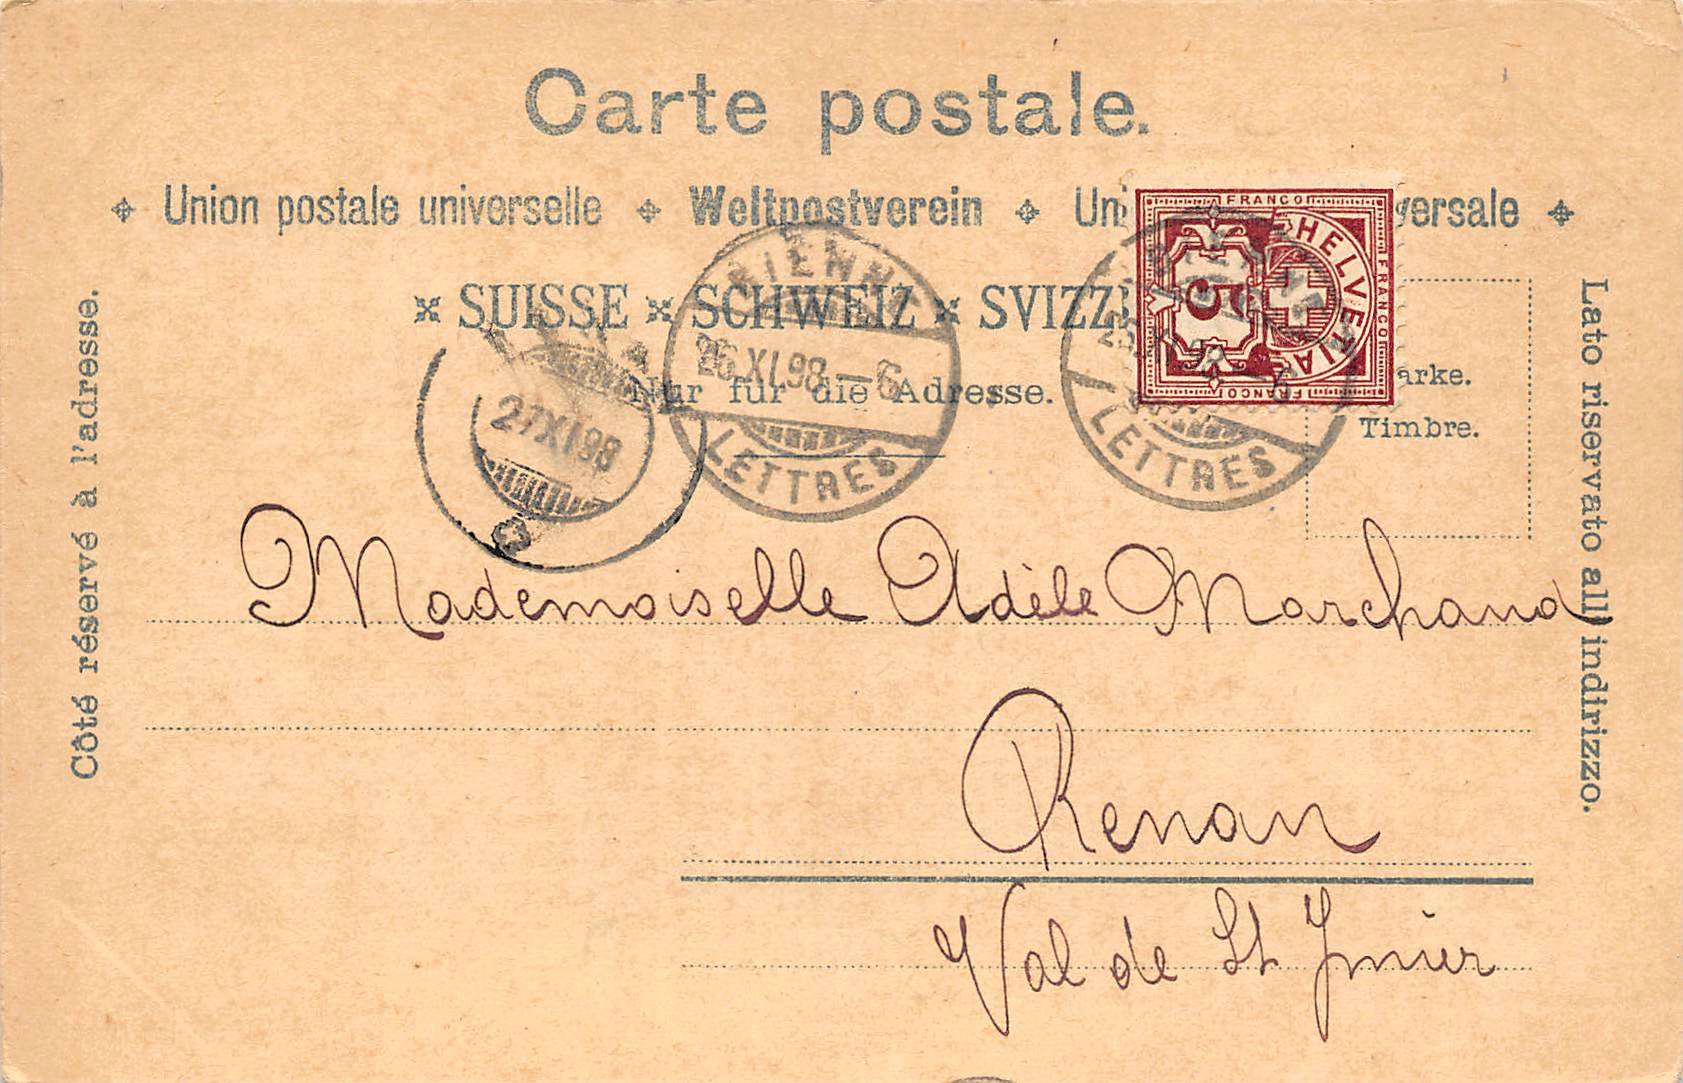 Carte postale.
Union postale universelle Weltpostverein Un versale
SUISSE SCHWEIZ SVIZZ
Nur für die Adresse.
arke.
Timbre.
Côté réservé à l'adresse.
Lato riservato all' indirizzo.
FRANCO
HELVETIA
FRANCO
5
FRANCO
BIENNE
26.XI.98-6
LETTRES
26.XI.98-6
LETTRES
27.XI.98
Mademoiselle Adèle Marchand
Renan
Val de St Imier